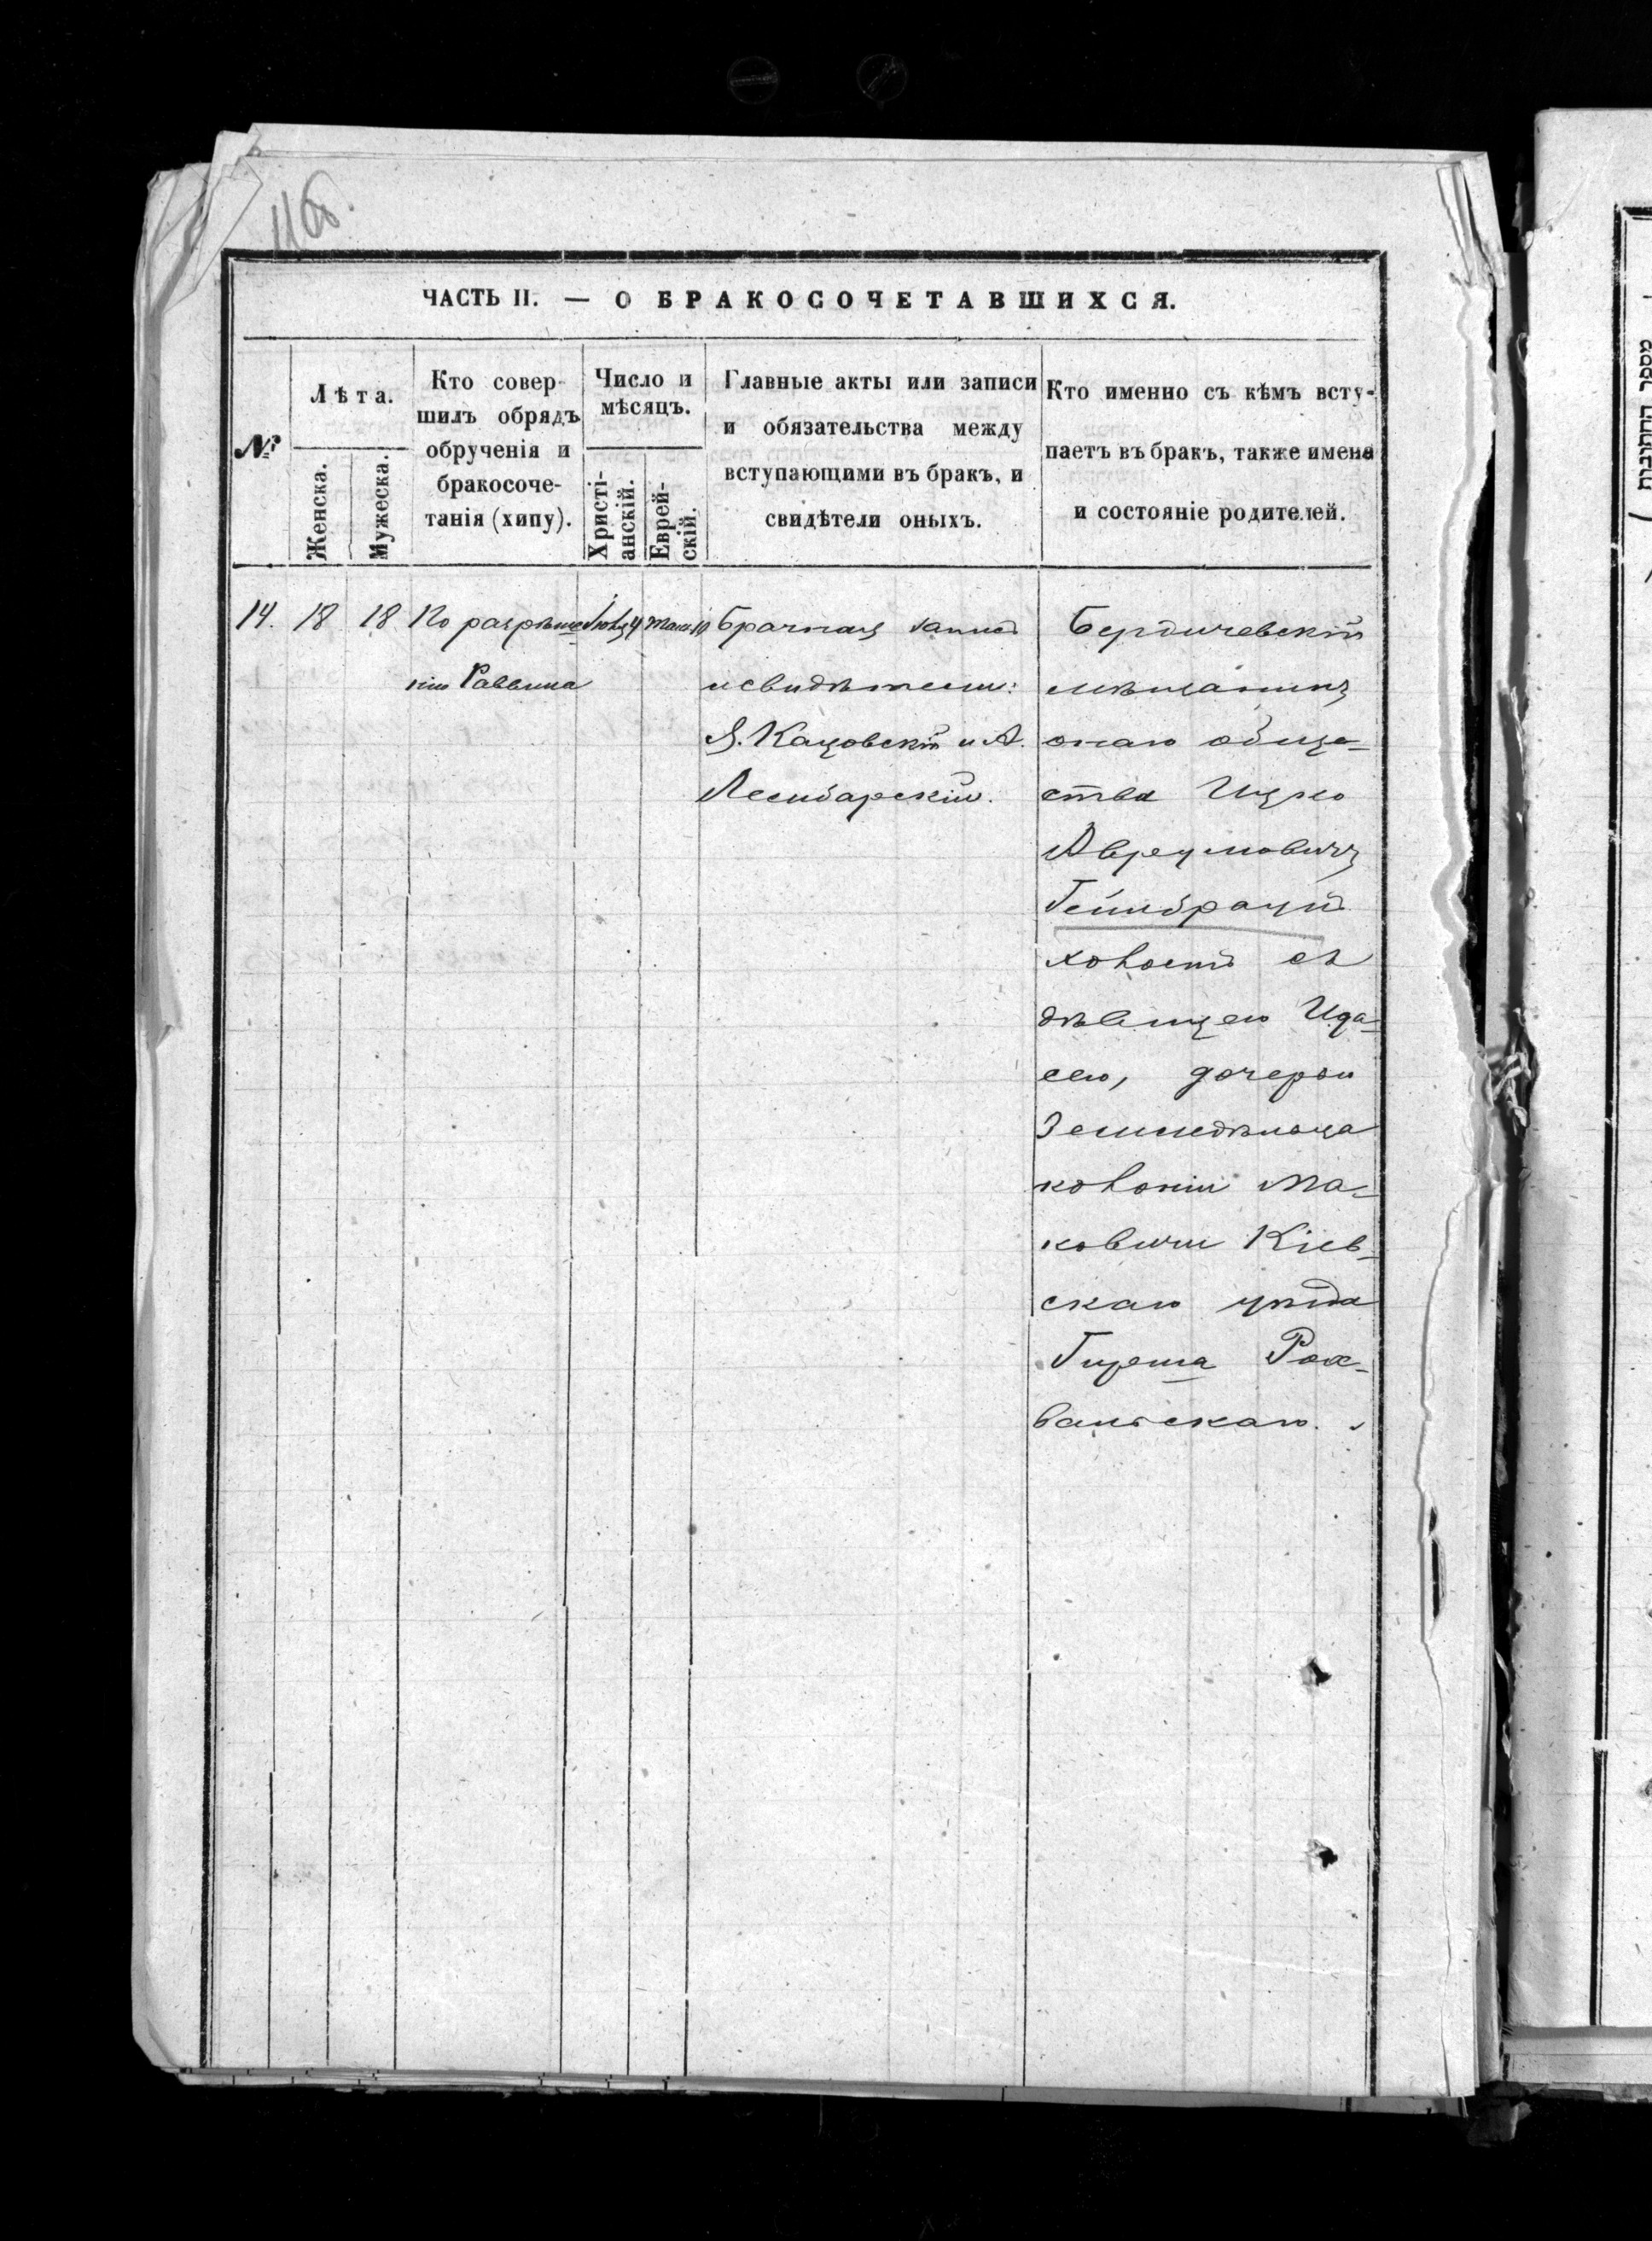 116
ЧАСТЬ II. — О БРАКОСОЧЕТАВШИХСЯ.
№
Лѣта.
Женска.
Мужеска.
Кто совер-
шилъ обрядъ
обрученія и
бракосоче-
танія (хипу).
Число и
мѣсяцъ.
Христі-
анскій.
Еврей-
скій.
Главные акты или записи
и обязательства между
вступающими въ бракъ, и
свидѣтели оныхъ.
Кто именно съ кѣмъ всту-
паетъ въ бракъ, также имена
и состояніе родителей.
14.
18
18
По разрѣше
нію Раввина
4
Брачная запись
и свидѣтели:
Я. Кацовскій и А.
Бердичевскій
мѣщанинъ
онаго обще-
ства Ицко
Аврумовичъ
холостъ съ
дѣвицею Ида-
сею, дочерью
Земледѣльца
колоніи Ма-
ковичи Кіев-
скаго уѣзда
вальскаго.
מספר החתונות